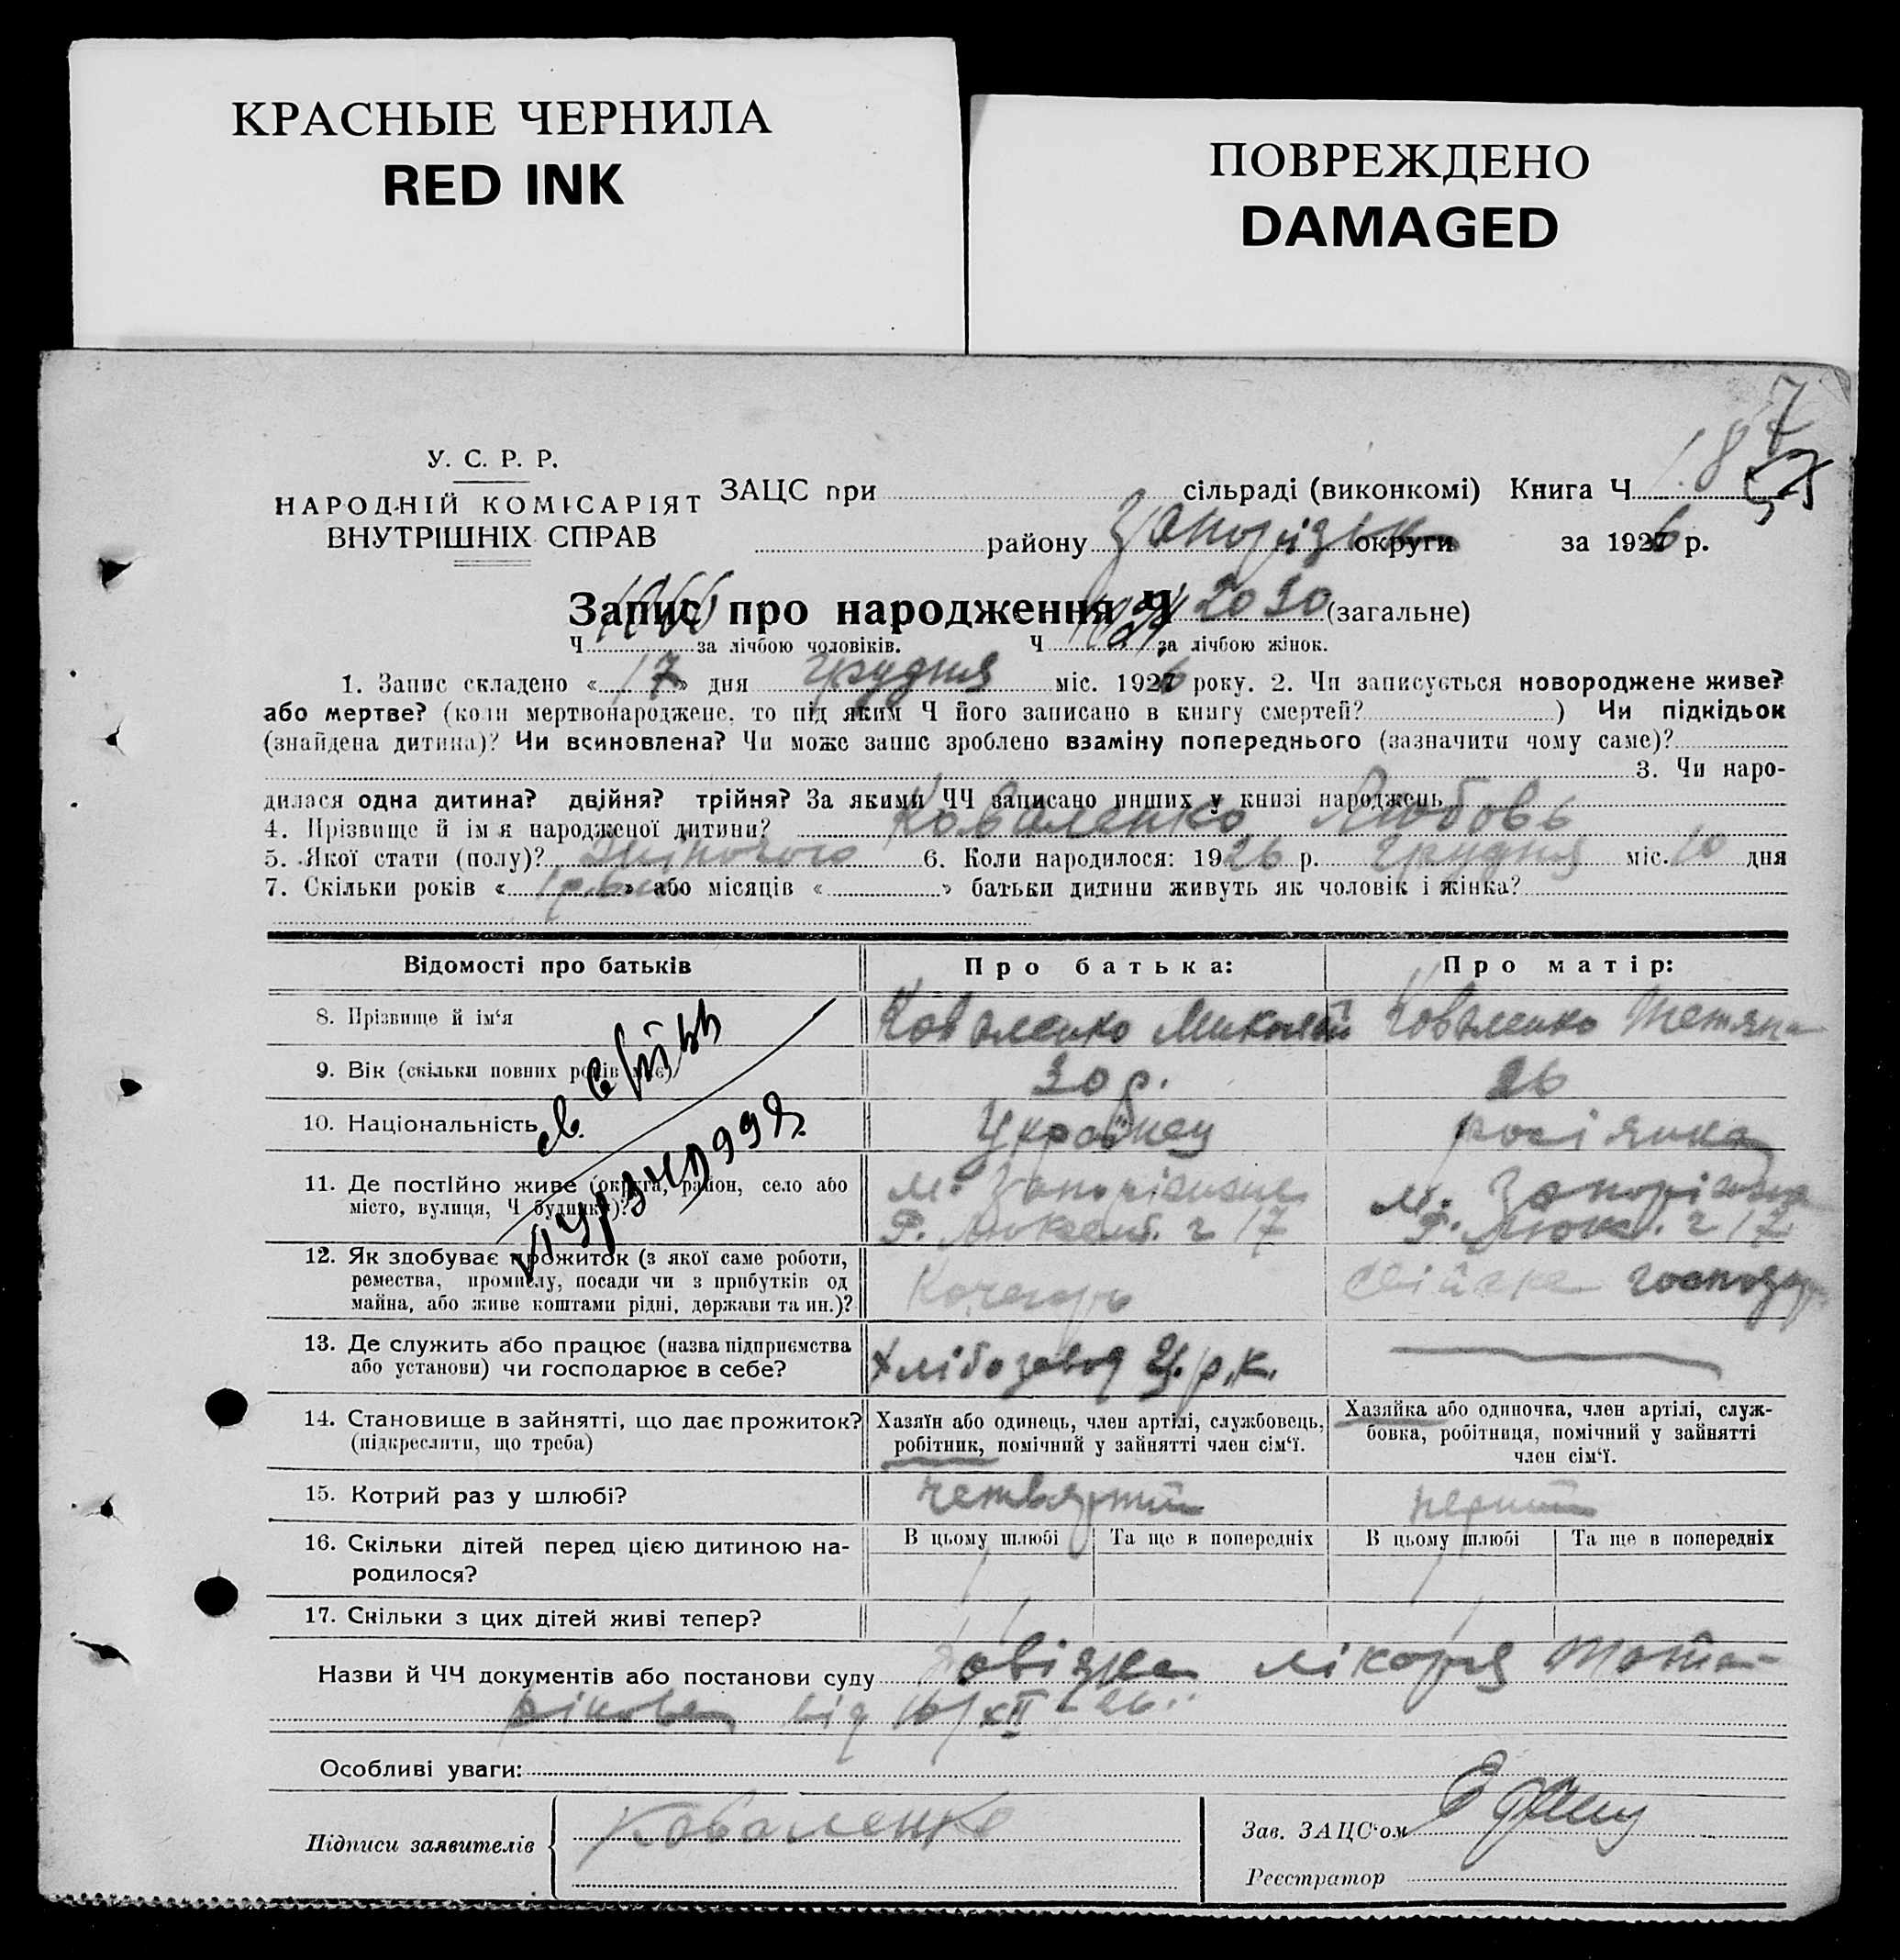 КРАСНЫЕ ЧЕРНИЛА
RED INK
ПОВРЕЖДЕНО
DAMAGED
7
У. С. Р. Р.
НАРОДНІЙ КОМІСАРІЯТ
ВНУТРІШНІХ СПРАВ
ЗАЦС при сільраді (виконкомі) Книга Ч 18
району Запорізьк округи за 1926 р.
Запис про народження Ч 2030 (загальне)
Ч за лічбою чоловіків. Ч за лічбою жінок.
1. Запис складено « 17 » дня грудня міс. 1926 року. 2. Чи записується новороджене живе?
або мертве? (коли мертвонароджене, то під яким Ч його записано в книгу смертей? ) Чи підкідьок
(знайдена дитина)? Чи всиновлена? Чи може запис зроблено взаміну попереднього (зазначити чому саме)?
3. Чи наро-
дилася одна дитина? двійня? трійня? За якими ЧЧ записано инших у книзі народжень
4. Прізвище й ім'я народженої дитини? Коваленко Любовь
5. Якої стати (полу)? Жіночого 6. Коли народилося: 1926 р. грудня міс. 10 дня
7. Скільки років « » або місяців « » батьки дитини живуть як чоловік і жінка?
Відомості про батьків Про батька: Про матір:
8. Прізвище й ім'я Коваленко Миколай Коваленко Тетяна
9. Вік (скільки повних років має) 30 р. 26
10. Національність Українец росіянка
11. Де постійно живе (округа, район, село або
місто, вулиця, Ч будинку)? м. Запоріжжя м. Запоріжжя
Р. Люксемб. 17 Р. Люкс. 17
12. Як здобуває прожиток (з якої саме роботи,
ремества, промислу, посади чи з прибутків од
майна, або живе коштами рідні, держави та ин.)? Кочегарь господар
13. Де служить або працює (назва підприємства
або установи) чи господарює в себе? Хлібозавод Ц.р.к.
14. Становище в зайнятті, що дає прожиток?
(підкреслити, що треба)
Хазяїн або одинець, член артілі, службовець,
робітник, помічний у зайнятті член сім'ї.
Хазяйка або одиночка, член артілі, служ-
бовка, робітниця, помічний у зайнятті
член сім'ї.
15. Котрий раз у шлюбі? четвертий перший
16. Скільки дітей перед цією дитиною на-
родилося?
В цьому шлюбі Та ще в попередніх В цьому шлюбі Та ще в попередніх
17. Скільки з цих дітей живі тепер?
Назви й ЧЧ документів або постанови суду довідка лікаря
від 16/XII 26
Особливі уваги:
Підписи заявителів Коваленко
Зав. ЗАЦС'ом
Реєстратор